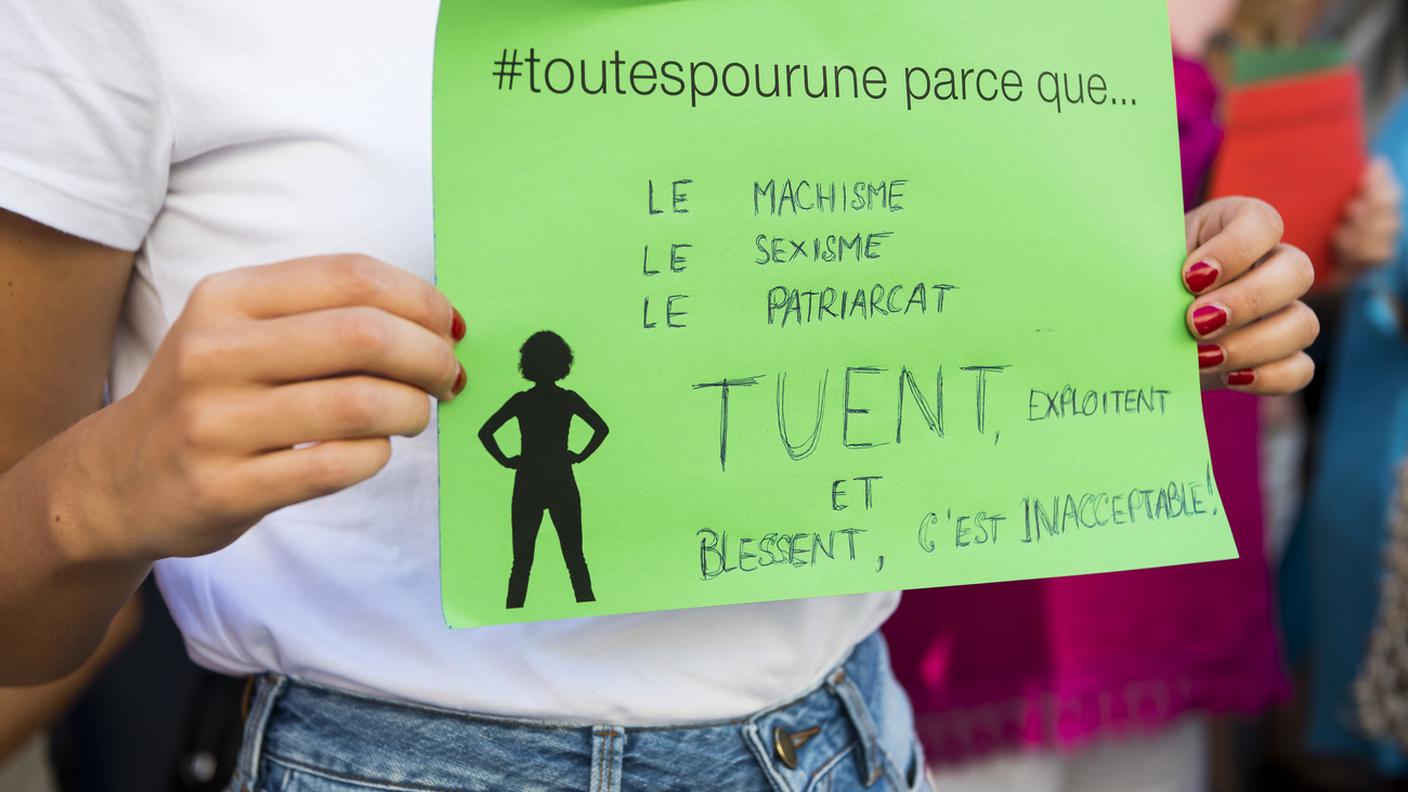 #toutespourune parce que...
LE MACHISME
LE SEXISME
LE PATRIARCAT
TUENT, EXPLOITENT
ET
BLESSENT, C'EST INACCEPTABLE!